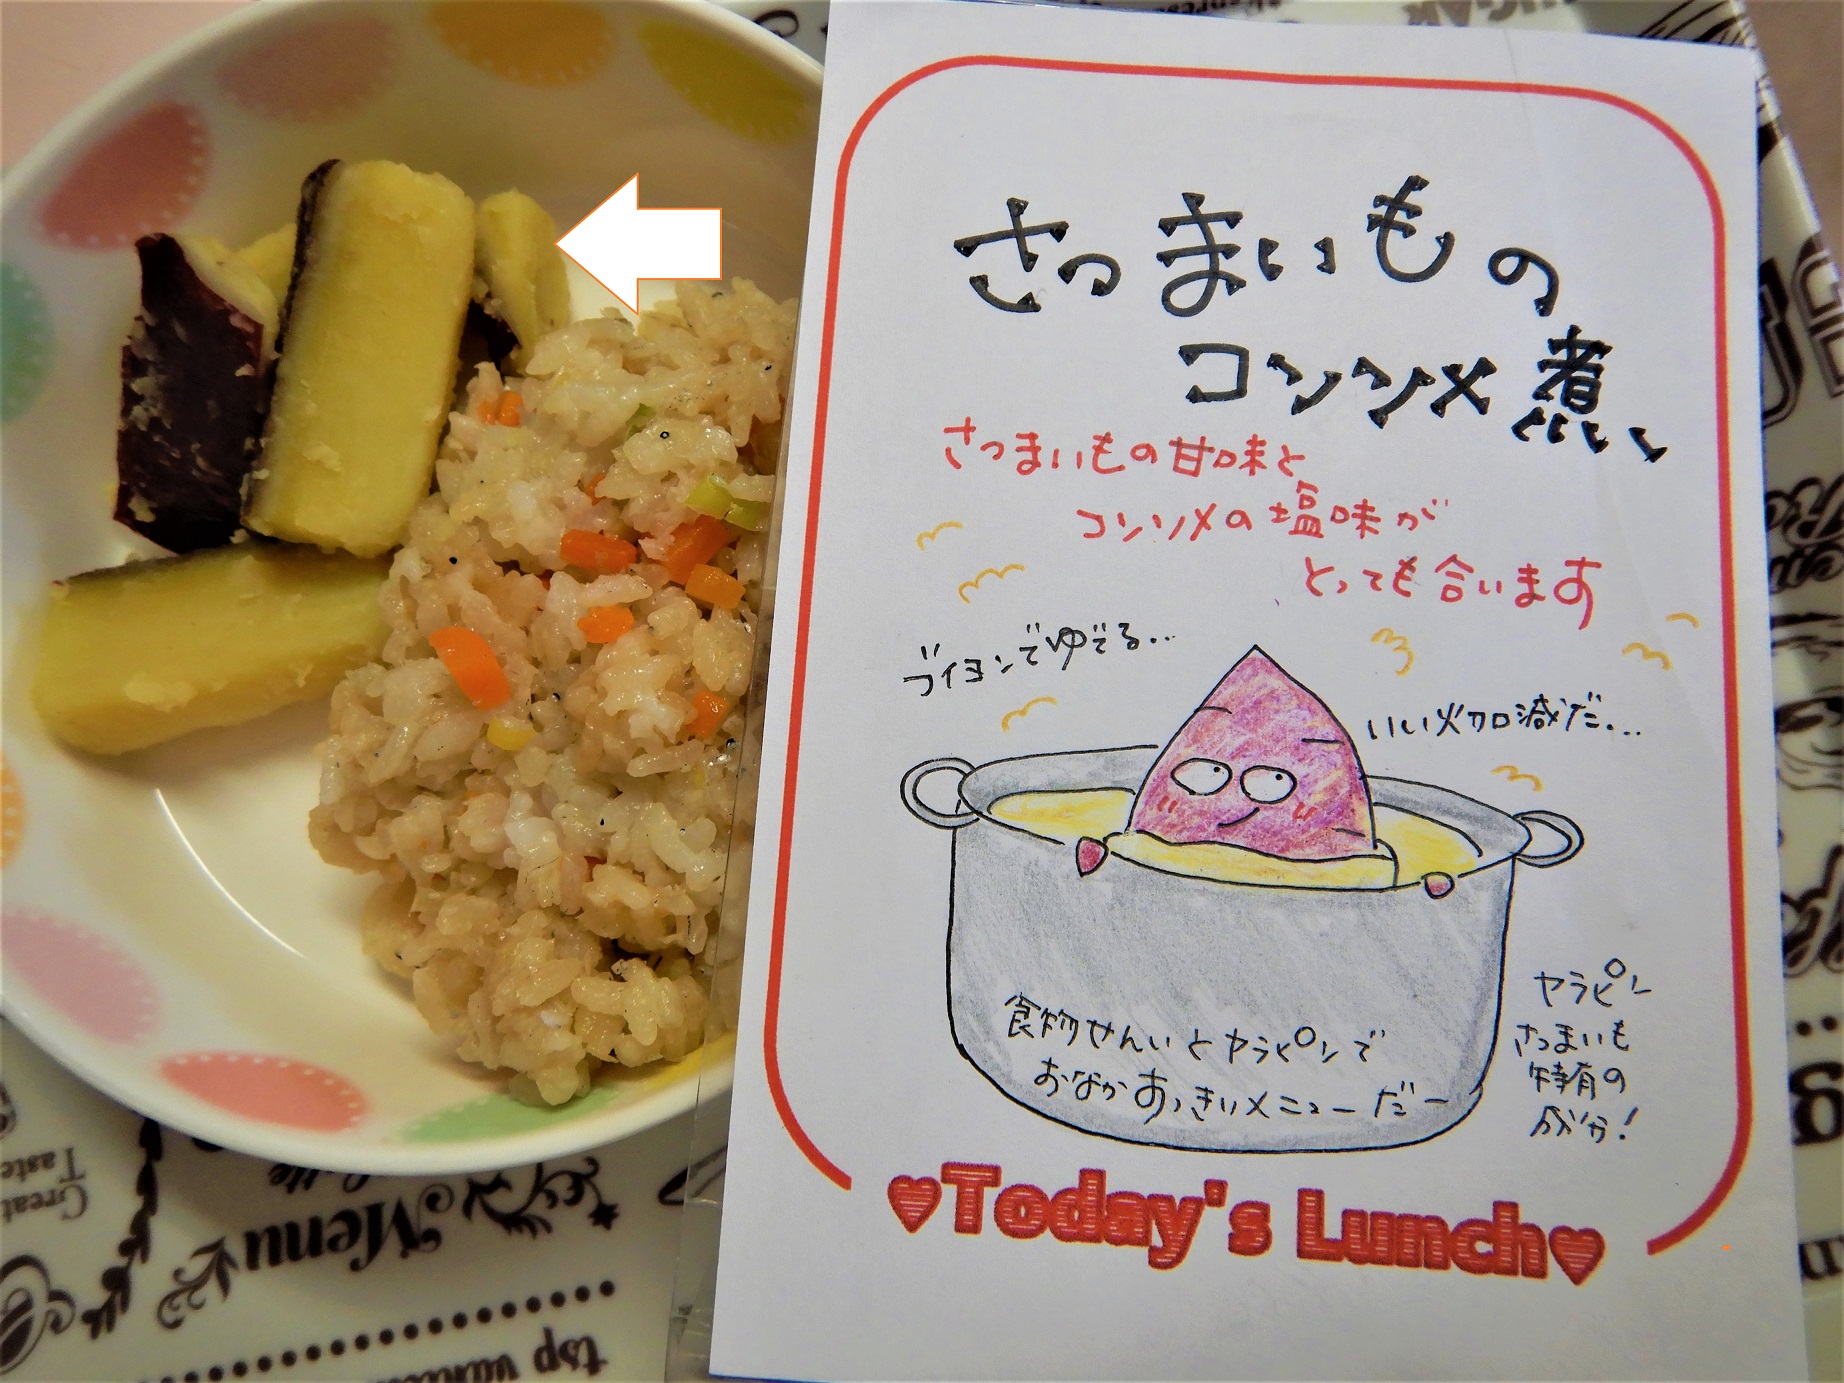 さつまいもの
コンソメ煮
さつまいもの甘味と
コンソメの塩味が
とっても合います
ブイヨンでゆでる…
いい火加減だ…
食物せんいとヤラピンで
おなかすっきりメニューだー
ヤラピン
さつまいも
特有の
成分!
♥Today's Lunch♥
Great
Taste
Menu
tsp